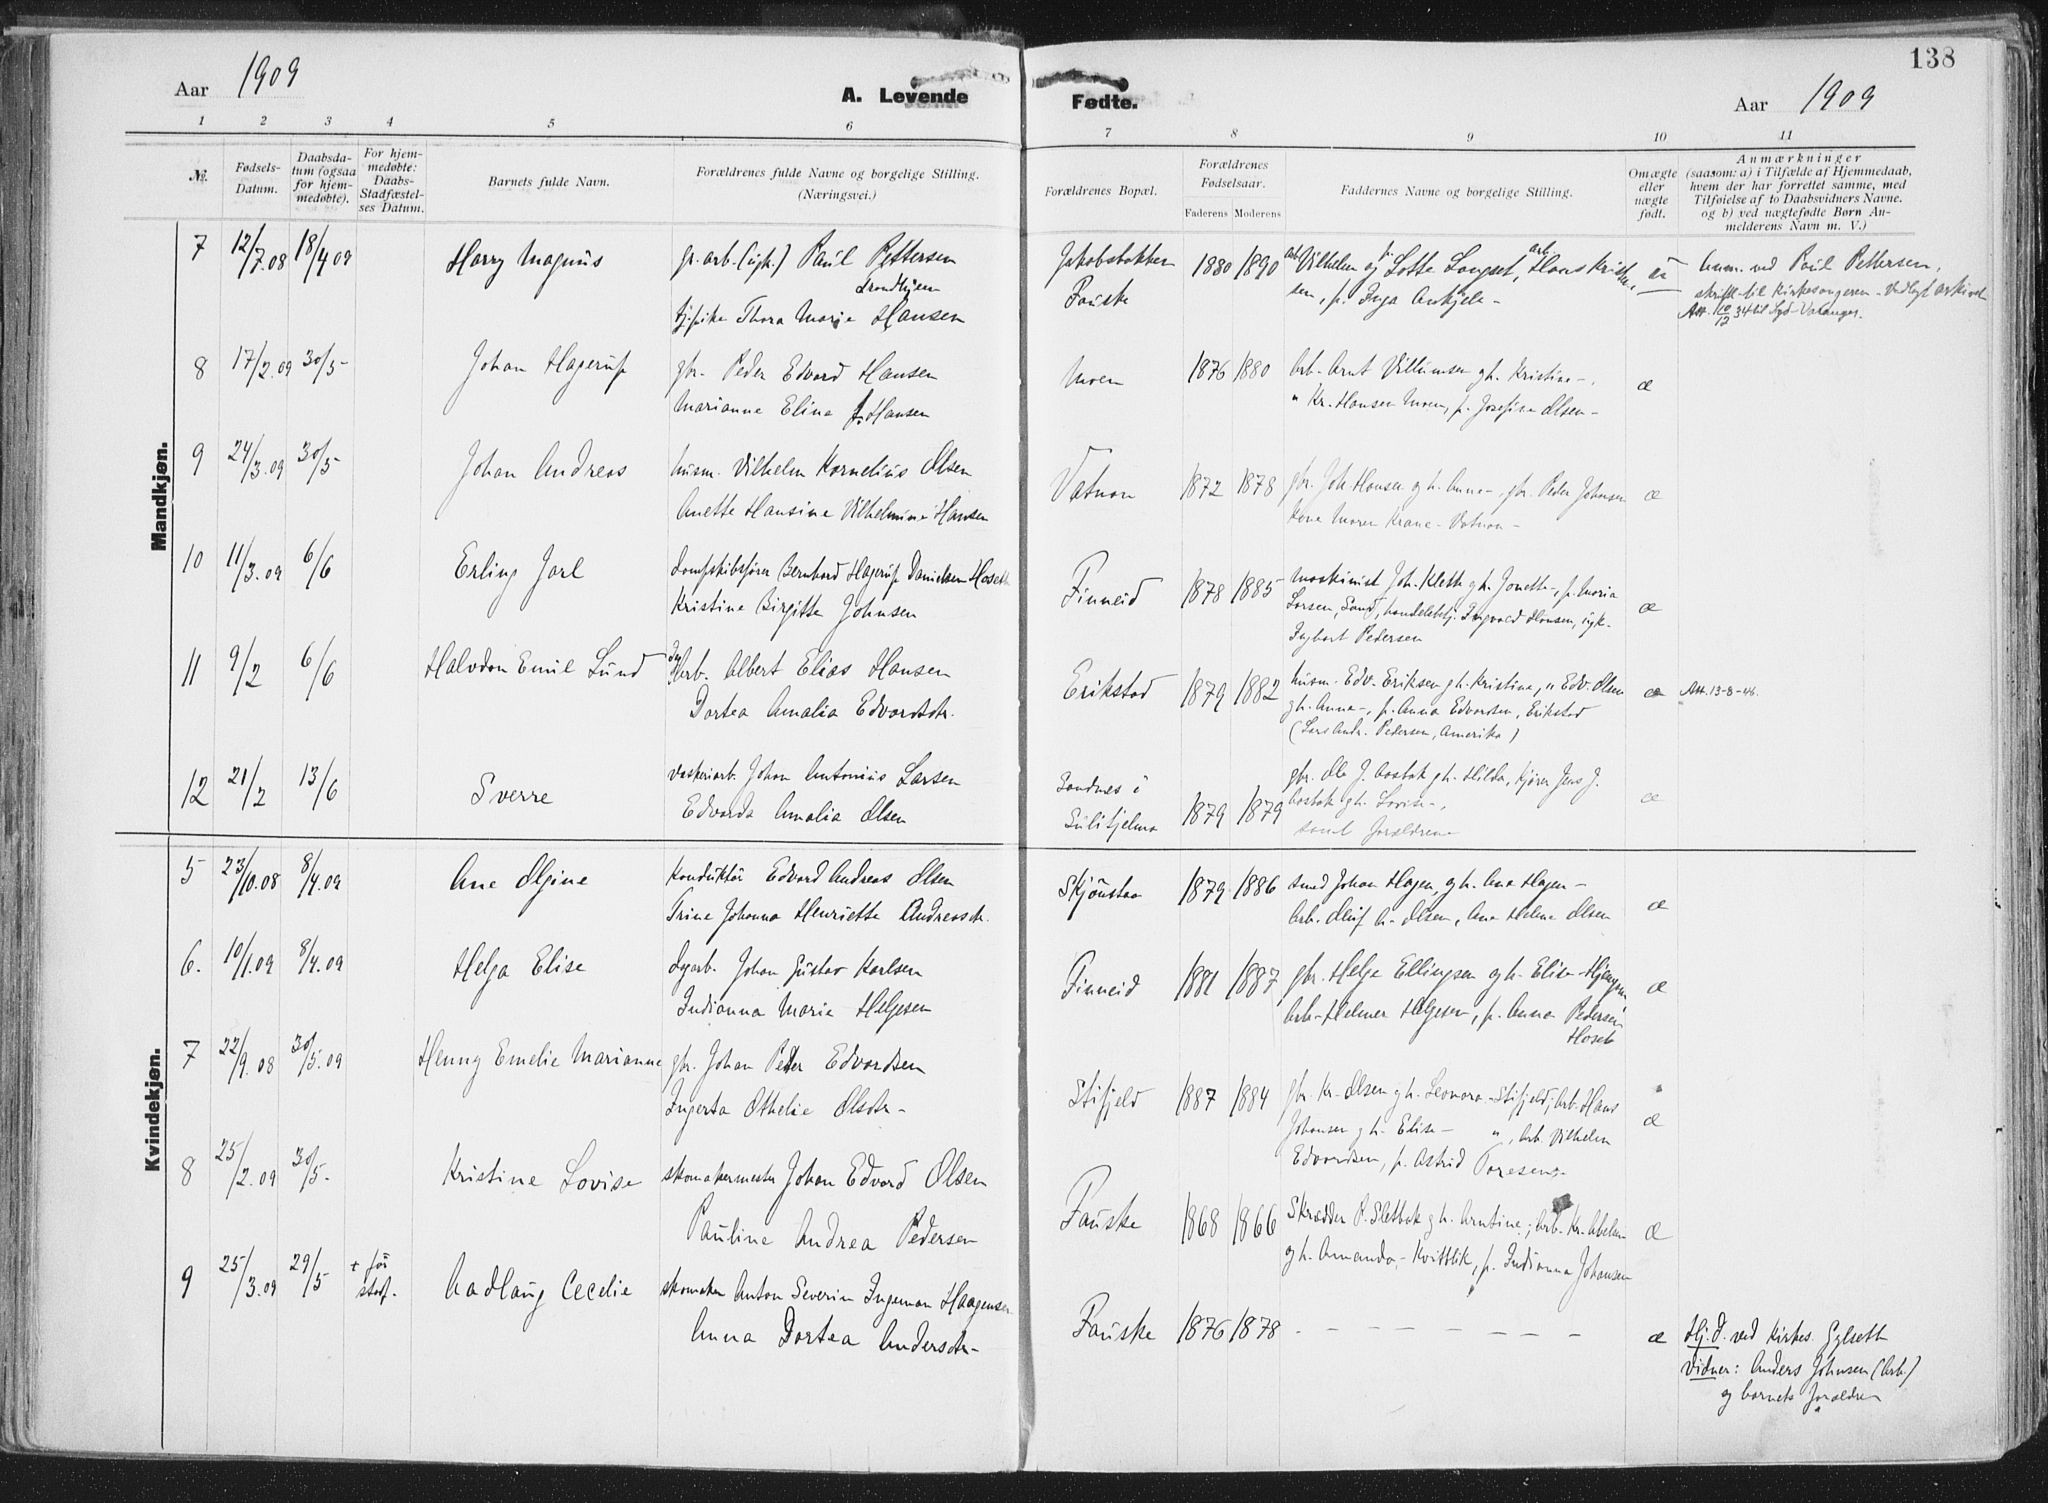 138
Aar 1909
A. Levende Fødte.
Aar 1909
1 2 3 4 5 6 7 8 9 10 11
№.
Fødsels-Datum.
Daabsdatum (ogsaa for hjemmedøbte).
For hjemmedøbte: Daabs-Stadfæstelses Datum.
Barnets fulde Navn.
Forældrenes fulde Navne og borgelige Stilling. (Næringsvei.)
Forældrenes Bopæl.
Forældrenes Fødselsaar.
Faderens Moderens
Faddernes Navne og borgelige Stilling.
Omægte eller uægte født.
Anmærkninger (saasom: a) i Tilfælde af Hjemmedaab, hvem der har forrettet samme, med Tilføielse af to Daabsvidners Navne. og b) ved uægtefødte Børn Anmelderens Navn m. V.)
Mandkjøn.
7 12/7.08 18/4 09 Harry Magnus gr. arb. (ugk.) Paul Pettersen
Trondhjem
tj.pike Thora Marie Hansen
Jakobsbakken
Fauske
1880 1890 arb Vilhelm og fr Lotte Langset, arb. Hans Kristen
sen, p. Inga Ankjele -
uæ
Anm. ved Paul Pettersen,
skriftl. til Kirkesangeren - Vedlagt arkivet
Att. 10/12 34 til Syd-Varanger.
8 17/2.09 30/5 Johan Hagerup gbr. Peder Edvard Hansen
Marianne Elina f. Hansen
Moen 1876 1880 Arb. Arnt Villumsen gh. Kristine -,
" Kr. Hansen Moen, p. Josefine Olsen -
æ
9 24/3.09 30/5 Johan Andreas husm. Vilhelm Kornelius Olsen
Anette Hansine Vilhelmine Hansen
Vatnan 1872 1878 gbr. Joh Hansen gh. Anna -, gbr. Peder Johnsen
Kone Maren Krane - Vatnan -
æ
10 11/3.09 6/6 Erling Jarl Dampskibsfører Bernhard Hagerup Danielsen Hoset
Kristine Birgitte Johnsen
Finneid 1878 1885 Maskinist Joh. Kleth gh. Jonette -, p. Maria
Larsen, Sand, handelsbetj. Ingvald Hansen, ugk.
Ingbart Pedersen
æ
11 9/2 6/6 Halvdan Emil Lund Dag Arb. Albert Elias Hansen
Dortea Amalia Edvardsdtr.
Erikstad 1879 1882 husm. Edv. Eriksen gh. Kristine, " Edv. Olsen
gh. Anna -, p. Anna Edvardsen, Erikstad
(Lars Andr. Pedersen, Amerika)
æ Att. 13-8-46.
12 21/2 13/6 Sverre vaskeriarb. Johan Antonius Larsen
Edvarda Amalia Olsen
Sandnes i
Sulitjelma
1879 1879 gbr. Ole J. Aasbak gh. Hilda, Kjører Jens J.
Aasbak gh. Lovise -,
samt forældrene
æ
Kvindekjøn.
5 23/10.08 8/4.09 Ane Olgine Konduktør Edvard Andreas Olsen
Trine Johanna Henriette Andreasdtr.
Skjønstaa 1879 1886 smed Johan Hagen, gh. Ana Hagen -
Arb. Oluf A. Olsen, Ane Helene Olsen
æ
6. 10/1.09 8/4.09 Helga Elise Dgarb. Johan Gustav Karlsen
Indianna Marie Helgesen
Finneid 1881 1887 gbr. Helge Ellingsen gh. Elise -
Arb. Helmer Helgesen, p. Anna Pedersen
Hoset
æ
7 22/9.08 30/5.09 Henny Emelie Marianne gbr. Johan Peder Edvardsen
Ingerta Othelie Olsdtr -
Stifjeld 1887 1884 gbr. Kr. Olsen gh. Leonora - Stifjeld; Arb. Hans
Johansen gh. Elise - ", Arb. Vilhelm
Edvardsen, p. Astrid Toresen -
æ
8 25/2.09 30/5 Kristine Lovise skomakermester Johan Edvard Olsen
Pauline Andrea Pedersen
Fauske 1868 1866 Skrædder P. Sletbak gh. Arntine; Arb. Kr. Abelsen
og h. Amanda - Kvitblik, p. Indianna Johansen
æ
9 25/3.09 29/5 + før
stadf.
Aadlaug Cecelie skomaker Anton Severin Ingeman Haagensen
Anna Dortea Andersdtr -
Fauske 1876 1878 - - - - - - - -
æ
Hj. d. ved Kirkes. Gylseth
Vidner: Anders Johnsen (Arb.)
og barnets forældre